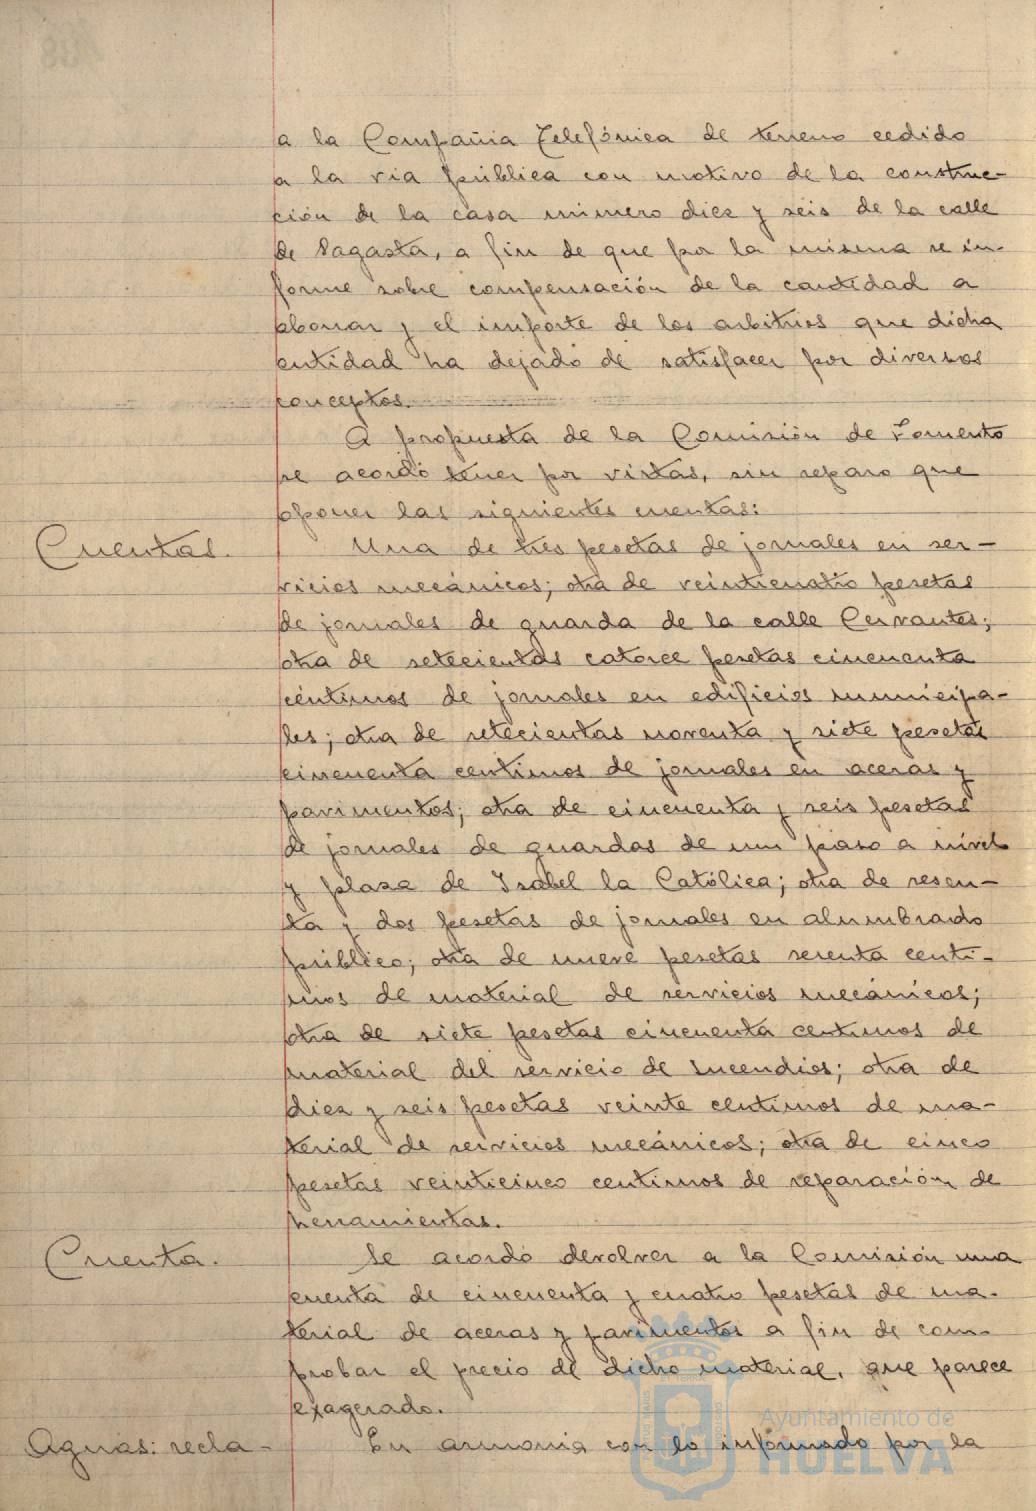 a la Compañia Telefónica de terreno cedido
a la via pública con motivo de la construc-
ción de la casa número diez y seis de la calle
de Sagasta, a fin de que por la misma se in-
forme sobre compensación de la cantidad a
abonar y el importe de los arbitrios que dicha
entidad ha dejado de satisfacer por diversos
conceptos.
A propuesta de la Comisión de Fomento
se acordó tener por vistas, sin reparo que
oponer las siguientes cuentas:
Cuentas.
Una de tres pesetas de jornales en ser-
vicios mecánicos; otra de veinticuatro pesetas
de jornales de guarda de la calle Cervantes;
otra de setecientas catorce pesetas cincuenta
céntimos de jornales en edificios municipa-
les; otra de setecientas noventa y siete pesetas
cincuenta centimos de jornales en aceras y
pavimentos; otra de cincuenta y seis pesetas
de jornales de guardas de un paso a nivel
y plaza de Isabel la Católica; otra de sesen-
ta y dos pesetas de jornales en alumbrado
público; otra de nueve pesetas setenta centi-
mos de material de servicios mecánicos;
otra de siete pesetas cincuenta centimos de
material del servicio de Incendios; otra de
diez y seis pesetas veinte centimos de ma-
terial de servicios mecánicos; otra de cinco
pesetas veinticinco centimos de reparación de
herramientas.
Cuenta.
Se acordó devolver a la Comisión una
cuenta de cincuenta y cuatro pesetas de ma-
terial de aceras y pavimentos a fin de com-
probar el precio de dicho material, que parece
exagerado.
Aguas: recla-
En armonia con lo informado por la
Ayuntamiento de
HUELVA